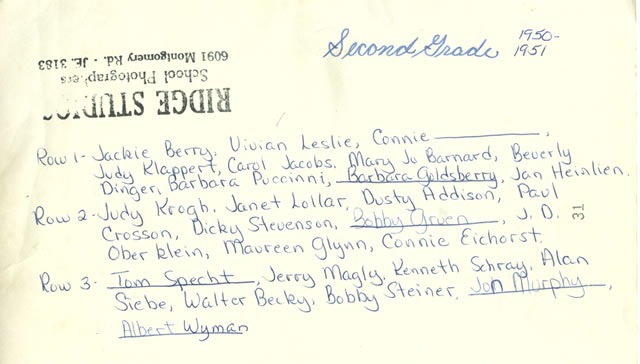 Second Grade 1950-
1951
RIDGE STUDIOS
School Photographers
6091 Montgomery Rd. - JE. 3183
Row 1- Jackie Berry, Vivian Leslie, Connie ________,
Judy Klappert, Carol Jacobs, Mary Jo Barnard, Beverly
Dinger, Barbara Puccinni, Barbara Goldsberry, Jan Heinlien.
Row 2- Judy Krogh, Janet Lollar, Dusty Addison, Paul
Crosson, Dicky Stevenson, Bobby Gruen, J. D.
Oberklein, Maureen Glynn, Connie Eichorst.
31
Row 3- Tom Specht, Jerry Magly, Kenneth Schray, Alan
Siebe, Walter Becky, Bobby Steiner, Jon Murphy,
Albert Wyman